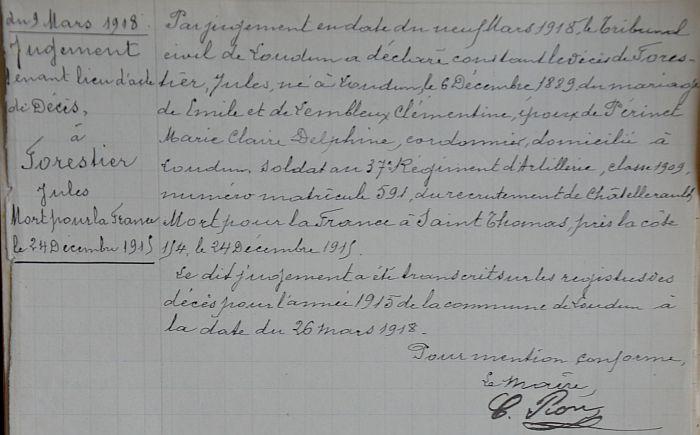 du 9 Mars 1918.
Jugement
tenant lieu d'acte
de Décès,
à
Forestier
Jules
Mort pour la France
le 24 Décembre 1915
Par jugement en date du neuf Mars 1918, le Tribunal
civil de Loudun a déclaré constant le décès de Fores-
tier, Jules, né à Loudun, le 6 Décembre 1889, du mariage
de Emile et de Vembleux Clémentine, époux de Périnet
Marie Claire Delphine, cordonnier, domicilié à
Loudun soldat au 37e Régiment d'Artillerie, classe 1909,
numéro matricule 591, du recrutement de Châtellerault
Mort pour la France à Saint Thomas, près la côte
154, le 24 Décembre 1915.
Le dit jugement a été transcrit sur les registres des
décès pour l'année 1915 de la commune de Loudun à
la date du 26 mars 1918.
Pour mention conforme,
Le Maire,